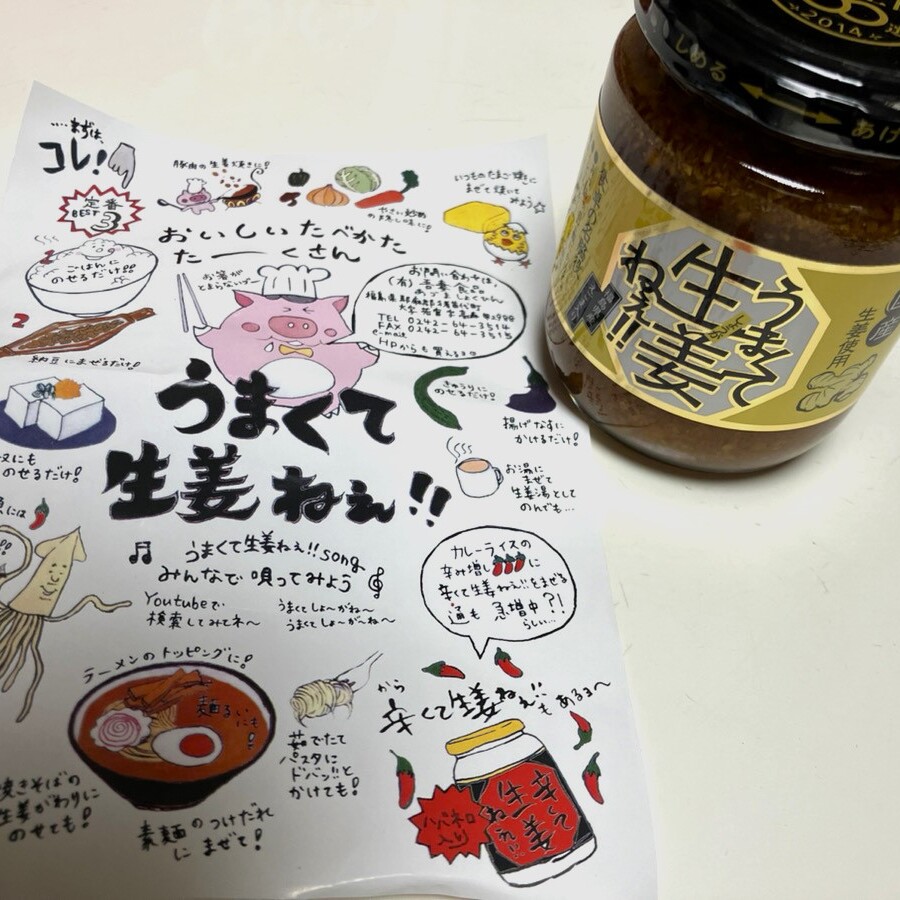 ....まずは、
コレ!
定番
BEST
3
豚肉の生姜焼きに!
やさい炒め
の味味に!
いつものたまご焼きに
まぜて焼いて
みよう☆
おいしいたべかた
たーーくさん
1
ごはんに
のせるだけ!!
お湯が
とまらないブー
お問い合わせは、
(有)吾妻食品
あづましょくひん
福島県耶麻郡猪苗代町
TEL 0242-64-3514
FAX 0242-64-3514
e-mail
HPからも買えるヨ
2
納豆にまぜるだけ!
きゅうりに
のせるだけ!
揚げなすに
かけるだけ!
奴にも
のせるだけ!
うまくて
生姜ねぇ!!
お湯に
まぜて
生姜湯として
のんでも…
には
♫ うまくて生姜ねぇ!!song
みんなで唄ってみよう
Youtubeで
検索してみてネ〜
うまくてしょ〜がね〜
うまくてしょ〜が〜ね〜
カレーライスの
辛み増しに
辛くて生姜ねぇ!!をまぜる
通も急増中?!
らしい…
ラーメンのトッピングに!
麺るいにも!
焼きそばの
生姜がわりに
のせても!
素麺のつけだれ
にまぜて!
茹でたて
パスタに
ドバッ!!と
かけても!
から
辛くて生姜ねぇ!!もあるョ〜
ハバネロ
入り
辛くて
生姜
ねぇ!!
2014
しめる
あけ
うまくて
生姜
しょうが
ねぇ!!
国産
生姜使用